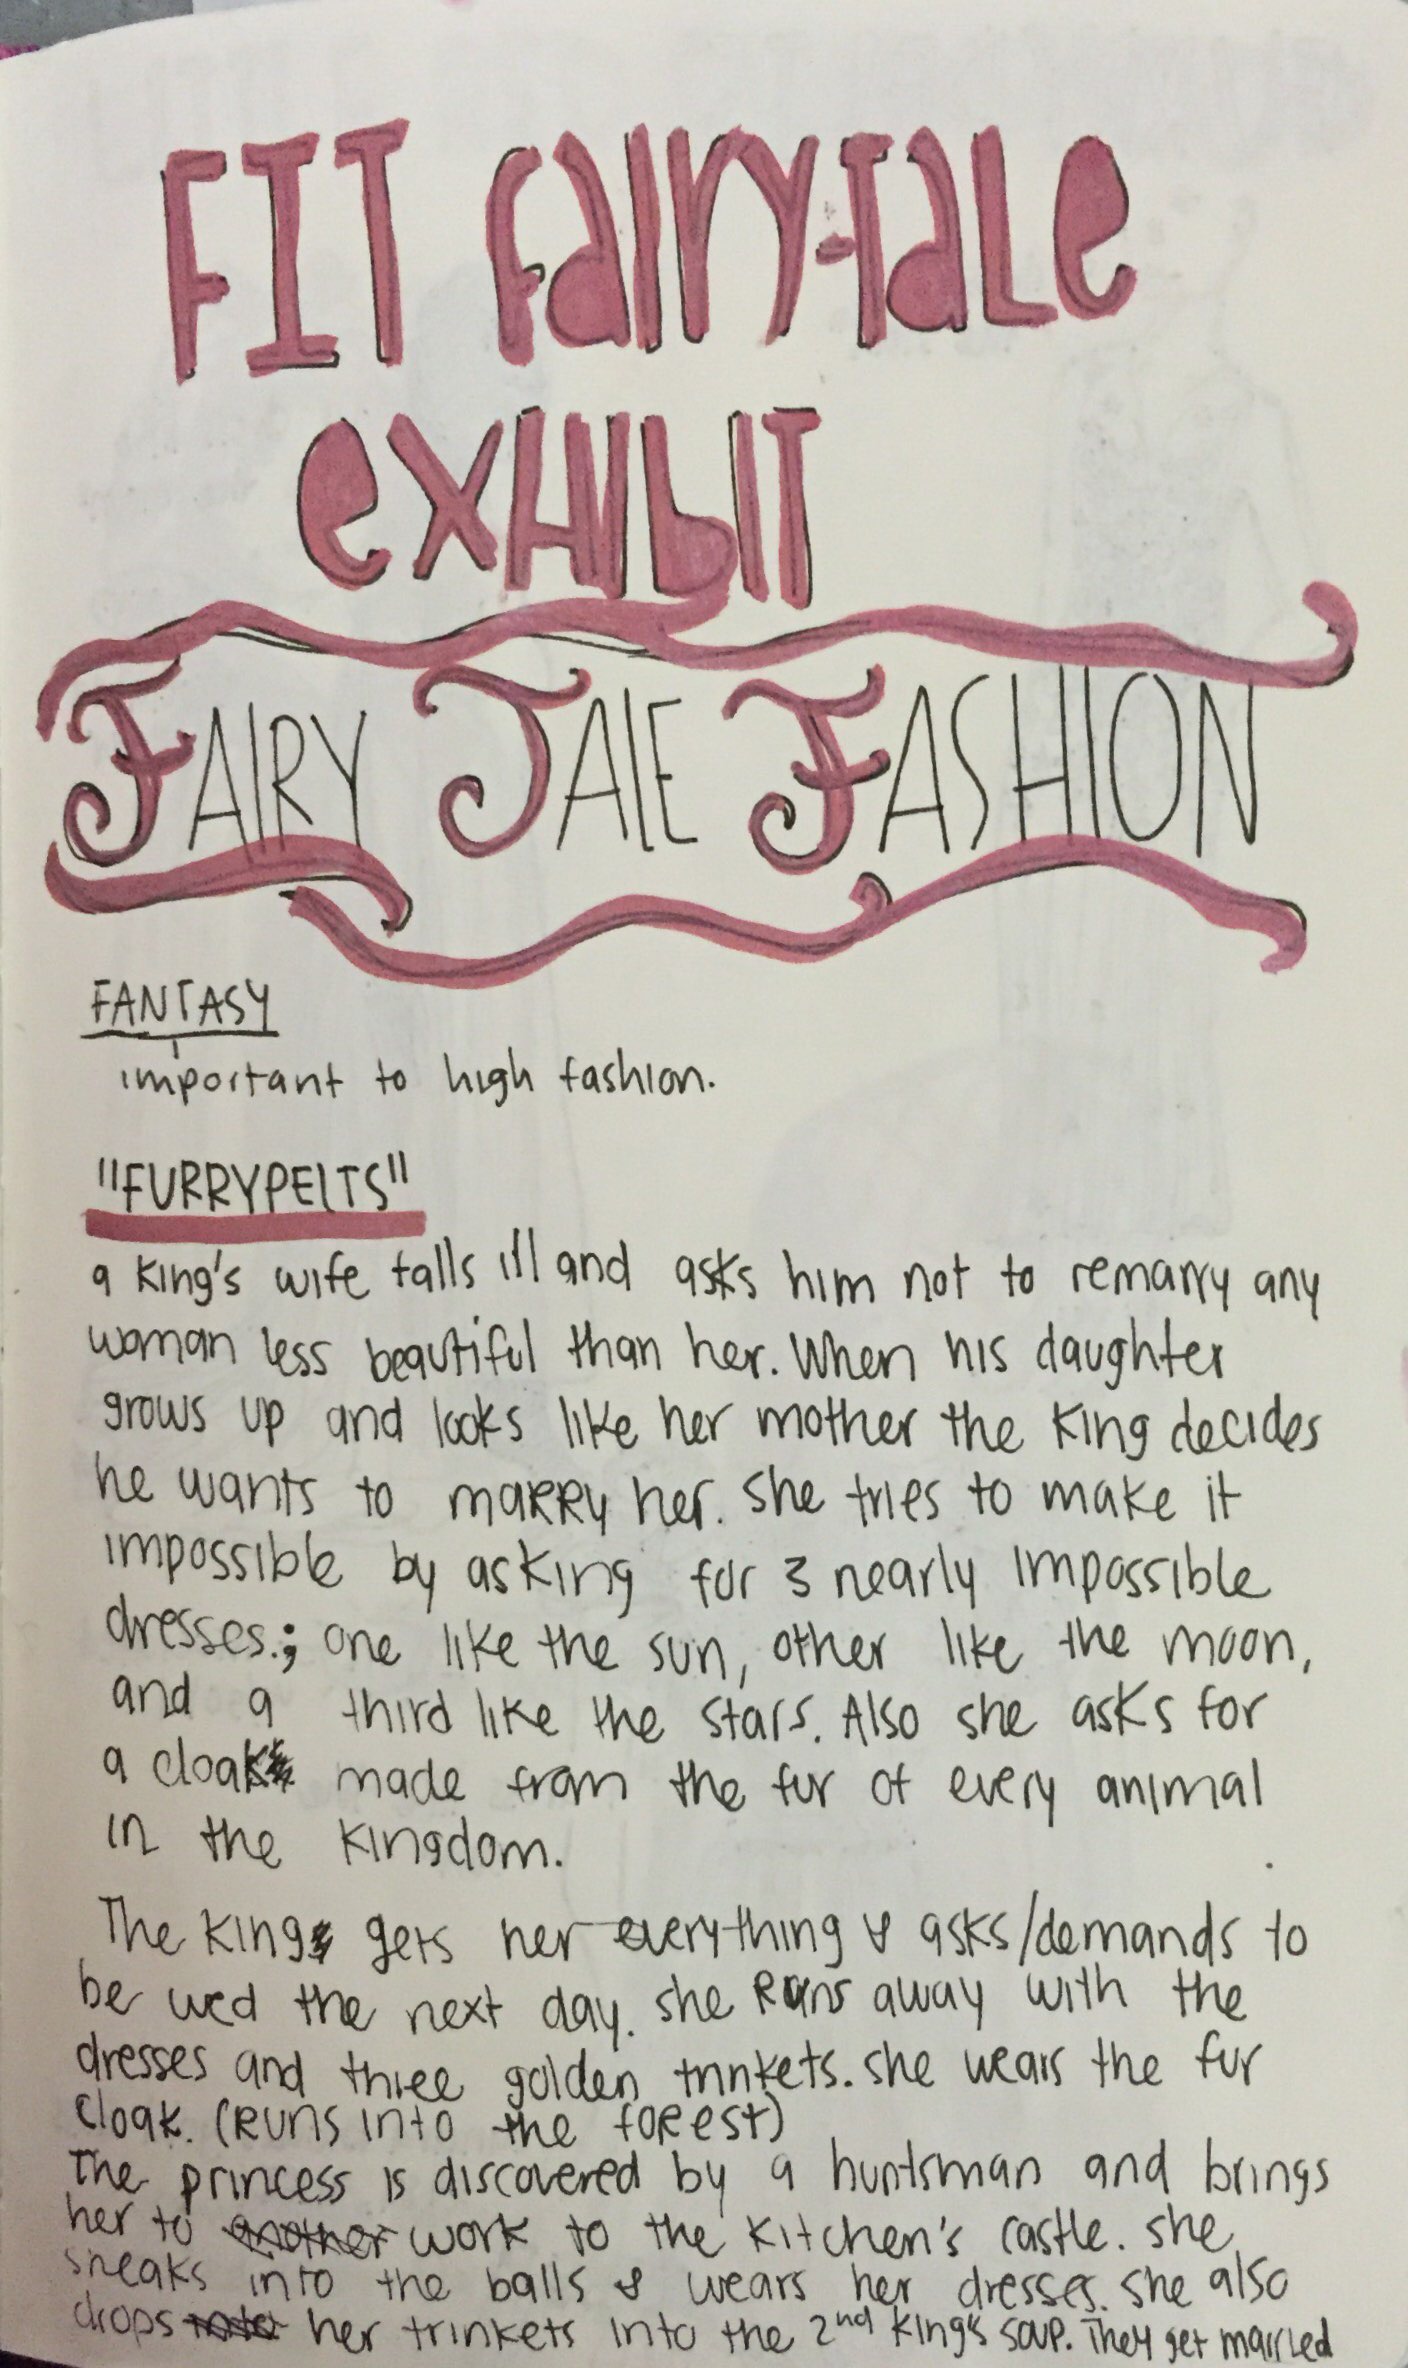 FIT fairy-tale
exhibit
FAIRY TALE FASHION
FANTASY
important to high fashion.
"FURRYPELTS"
a king's wife falls ill and asks him not to remarry any
woman less beautiful than her. When his daughter
grows up and looks like her mother the king decides
he wants to maRRy her. She tries to make it
impossible by asking for 3 nearly impossible
dresses.; one like the sun, other like the moon,
and a third like the stars. Also she asks for
a cloak made from the fur of every animal
in the kingdom.
The king gets her everything & asks/demands to
be wed the next day. She Runs away with the
dresses and three golden trinkets. She wears the fur
cloak. (Runs into the foRest)
The princess is discovered by a huntsman and brings
her to another work to the kitchen's castle. She
sneaks into the balls & wears her dresses. She also
drops into her trinkets into the 2nd king's soup. They get married